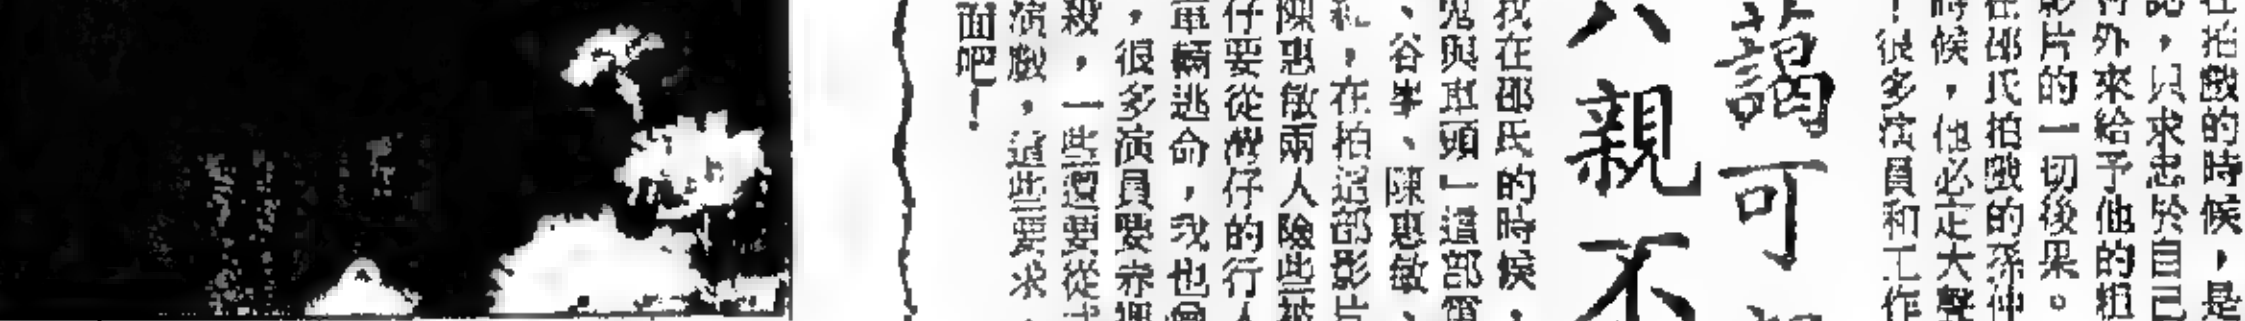 在拍戲的時候，是
認，只求忠於自己
外來給予他的
影片的一切後果。
邵氏拍戲的孫仲
時候，他必定大聲
！很多演員和工作
謁可
六親不
我在邵氏的時候，
鬼與車頭」這部電
、谷峯、陳惠敏、
在拍這部影片
陳惠敏兩人險些被
仔要從灣仔的行人
車輛逃命，我也會
，很多演員要赤裸
殺，一些還要從
演戲，這些要求，
面吧！